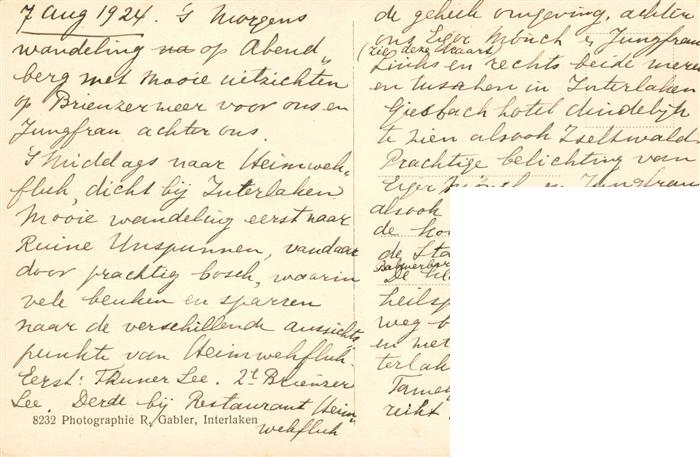 7 Aug 1924. 's Morgens
wandeling op Abend
berg met Mooie uitzichten
op Brienzermeer voor ons en
Jungfrau achter ons.
's Middags naar Heimweh-
fluh, dicht bij Interlaken
Mooie wandeling eerst naar
Ruine Unspunnen, vandaar
door prachtig bosch, waarin
vele beuken en sparren
naar de verschillende aussichts
punkte van Heimwehfluh.
Eerst: Thuner See. 2e Brienzer
See. Derde bij Restaurant Heim
wehfluh
8232 Photographie R. Gabler, Interlaken
de geheele omgeving, achter
ons Eiger Mönch en Jungfrau
(zie deze kaart)
Links en rechts beide meren
en tusschen in Interlaken
Giesbach hotel duidelijk
te zien alsook Iseltwald
Prachtige belichting van
Eiger Mönch en Jungfrau
alsook
de
de
De
heilsp
weg b
en met
terlak
Tame
reikt